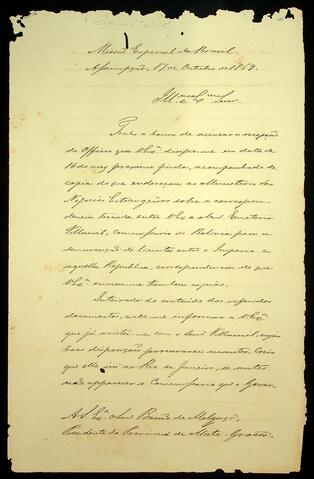 Missão Especial do Brasil
Assumpção, 17 de Outubro de 1869.
Illmo e Exmo Senr
Tenho a honra de accusar a recepção
do Officio que V. Exa dirigio-me em data de
16 do mez proximo findo, acompanhado de
copia do que endereçou ao Ministerio dos
Negocios Estrangeiros sobre a correspon-
dencia havida entre V. Exa e o Senr
Villamil, Commissario de Bolivia para a
demarcação de limites entre o Imperio e
aquella Republica, correspondencia de que
V. Exa enviou-me tambem copias.
Inteirado do conteúdo dos referidos
documentos, cabe-me informar a V. Exa
que já avistei-me com o Senr Villamil, cujas
boas disposição procurarei manter. Creio
que elle irá ao Rio de Janeiro, se antes
não apparecer o Commissario que o Gover-
A S. Exa o Senr Barão de Melgaço,
Presidente da Provincia de Mato-Grosso.